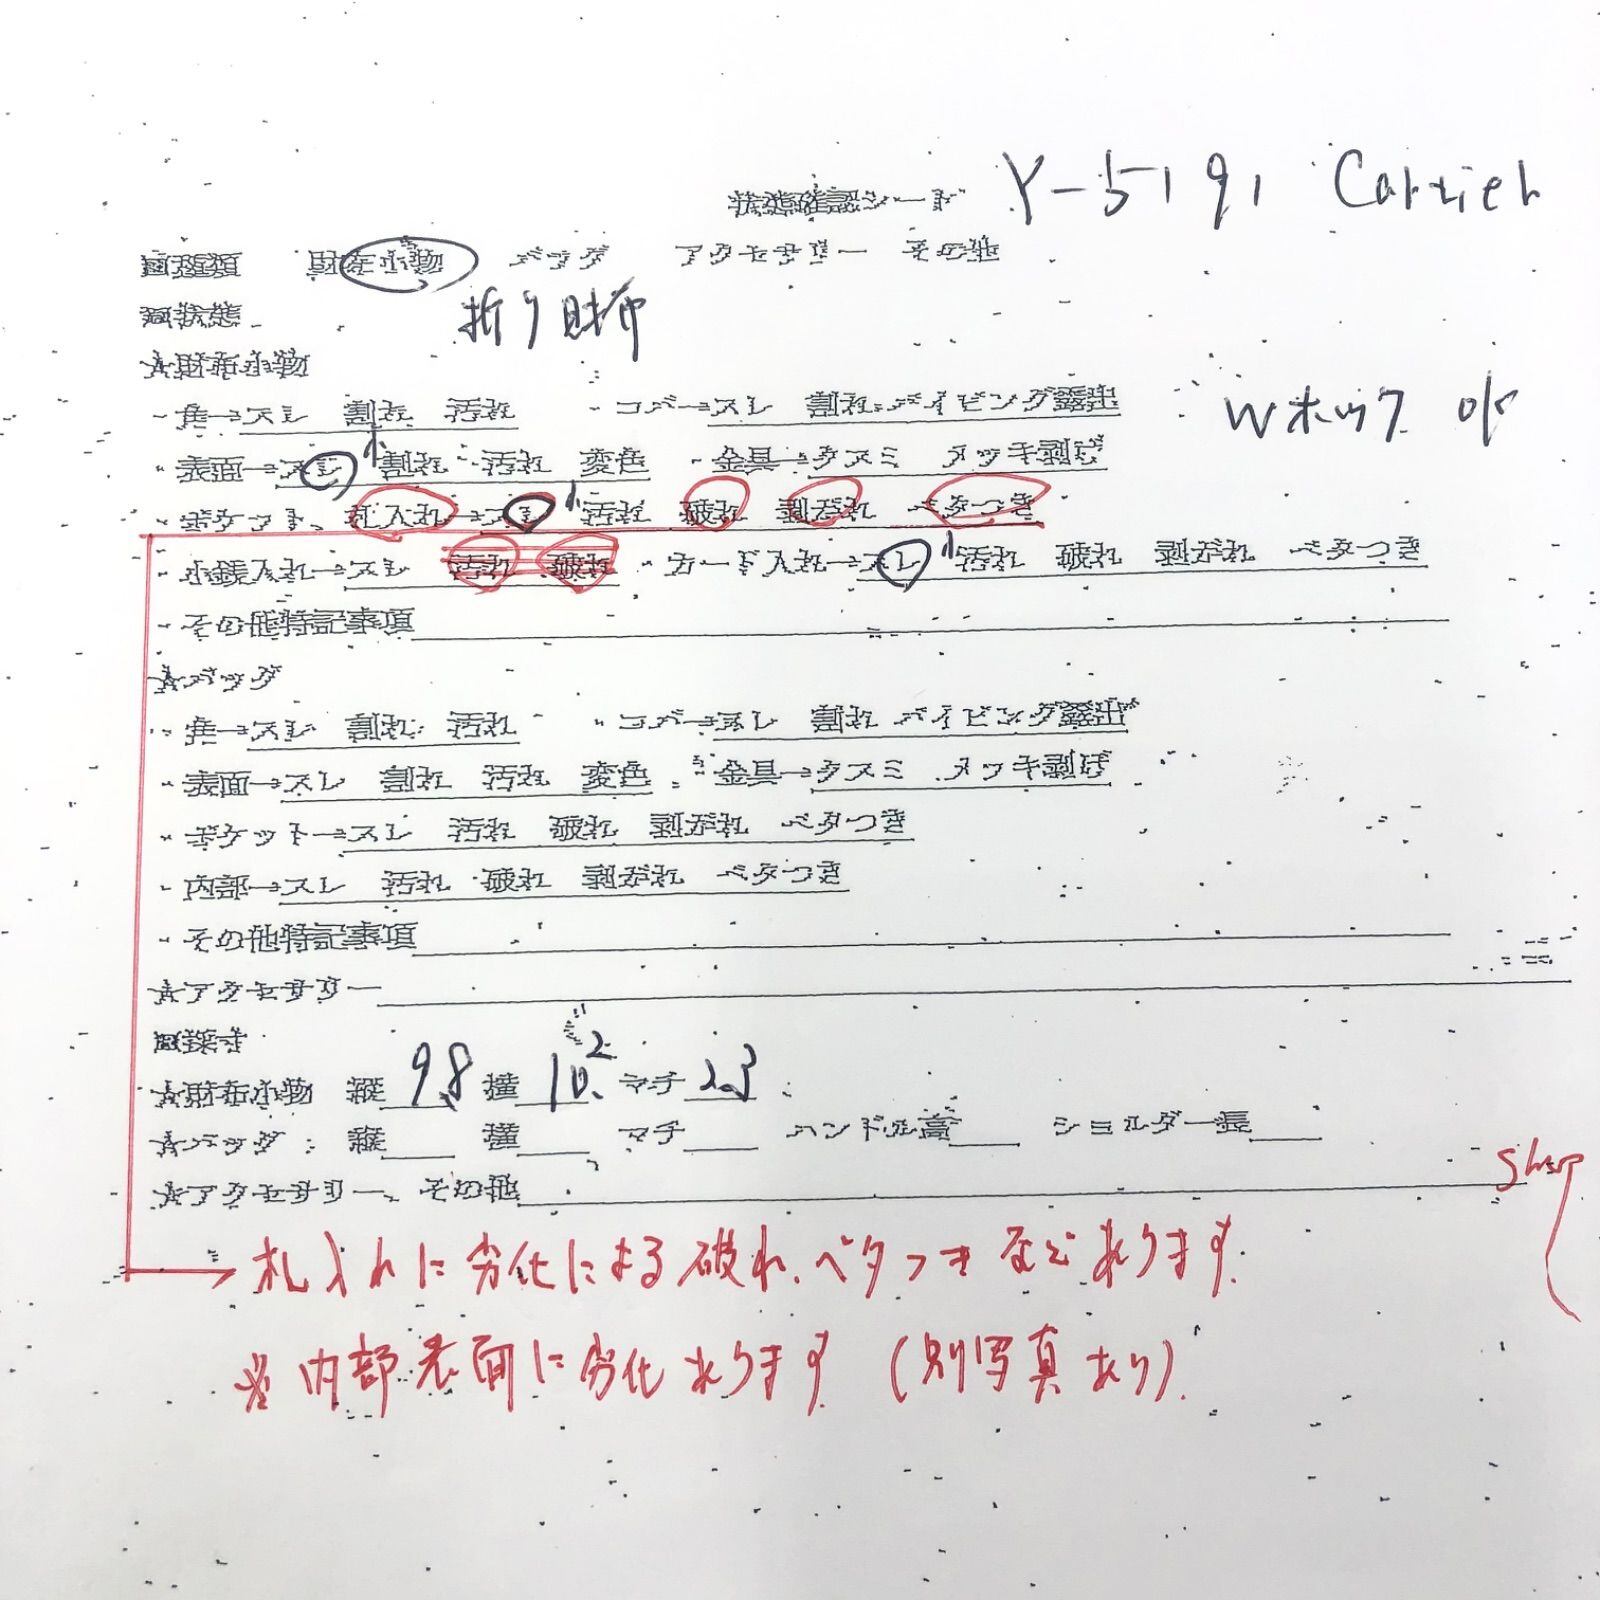 状態確認シード Y-5191 Carrier
回種類 財布小物 バッグ アクセサリー その他
回状態 折り財布
☆財布小物
・角→スレ 割れ 汚れ ・コバ→スレ 割れ パイピング露出 Wホック ok
・表面→スレ 小 割れ 汚れ 変色 ・金具→クスミ メッキ剥げ
・ポケット、札入れ→スレ 小 汚れ 破れ 剥がれ ベタつき
・小銭入れ→スレ 汚れ 破れ ・カード入れ→スレ 小 汚れ 破れ 剥がれ ベタつき
・その他特記事項
☆バッグ
・角→スレ 割れ 汚れ ・コバ→スレ 割れ パイピング露出
・表面→スレ 割れ 汚れ 変色 ・金具→クスミ メッキ剥げ
・ポケット→スレ 汚れ 破れ 剥がれ ベタつき
・内部→スレ 汚れ 破れ 剥がれ ベタつき
・その他特記事項
☆アクセサリー
回採寸
☆財布小物 縦 9.8 横 10.2 マチ 2.3
☆バッグ 縦 横 マチ ハンドル高 ショルダー長
☆アクセサリー、その他
札入れに劣化による破れ、ベタつきなどあります。
※内部表面に劣化あります (別写真あり)